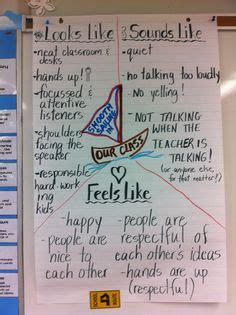 Looks Like
-neat classroom &
desks
-hands up!
-focussed &
attentive
listeners
-shoulders
facing the
speaker
-responsible
hard working
kids
Sounds Like
-quiet
- no talking too loudly
- No yelling!
- NOT TALKING
WHEN THE
TEACHER IS
TALKING!
(or anyone else,
for that matter!)
SMOOTH
SAILING
IN
OUR CLASS
Feels Like
- happy
- people are
nice to
each other
- people are
respectful of
each other's ideas
- hands are up
(respectful!)
SCHOOL
4